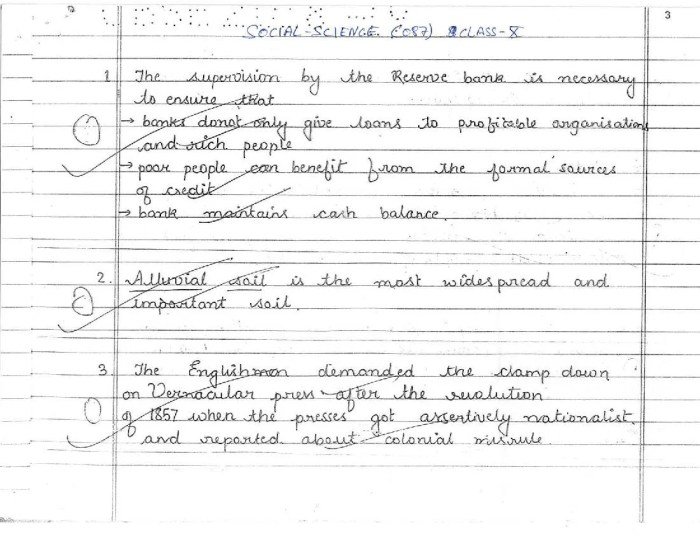 3
SOCIAL-SCIENCE (087) CLASS-X
1. The supervision by the Reserve bank is necessary
to ensure that
→ banks donot only give loans to profitable organisations
and rich people
→ poor people can benefit from the formal sources
of credit
→ bank maintains cash balance.
2. Alluvial soil is the most widespread and
important soil.
3. The Englishmen demanded the clamp down
on Vernacular press after the revolution
of 1857 when the presses got assertively nationalist.
and reported about colonial misrule.